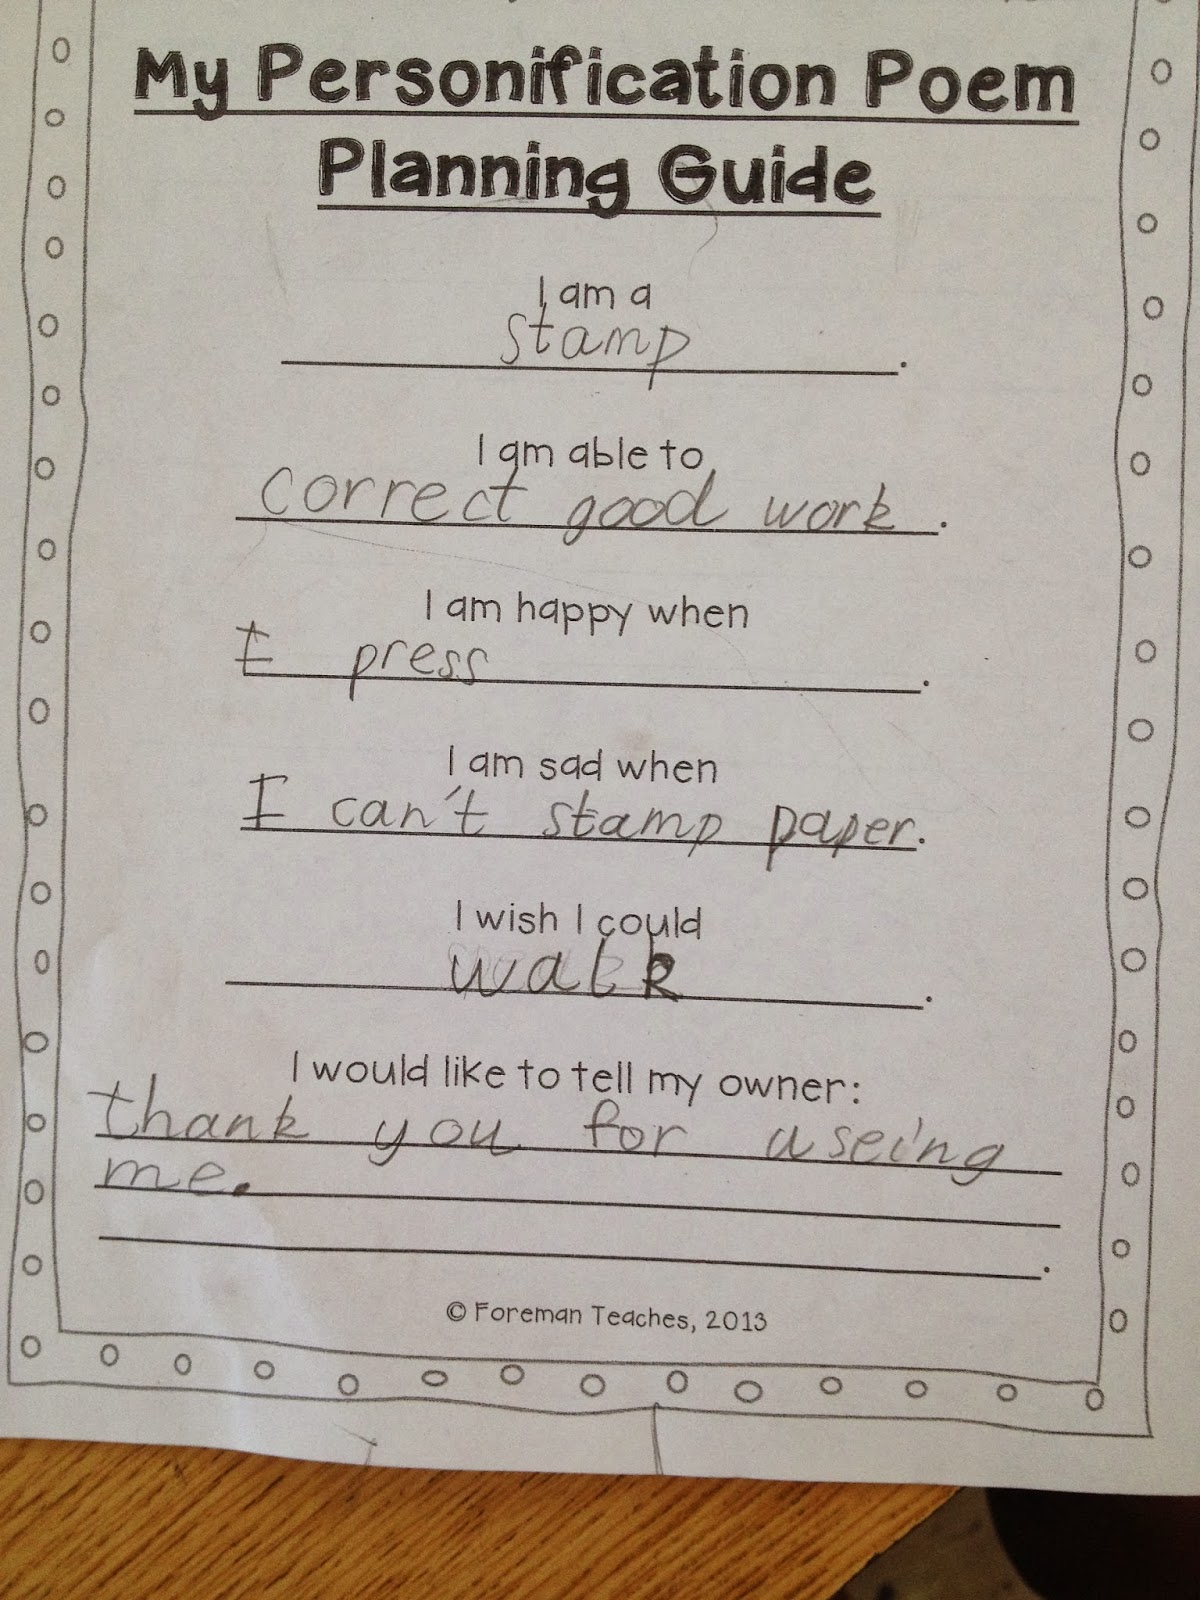 My Personification Poem
Planning Guide
I am a
stamp.
I am able to
correct good work.
I am happy when
I press.
I am sad when
I can't stamp paper.
I wish I could
walk.
I would like to tell my owner:
thank you for useing
me.
.
© Foreman Teaches, 2013